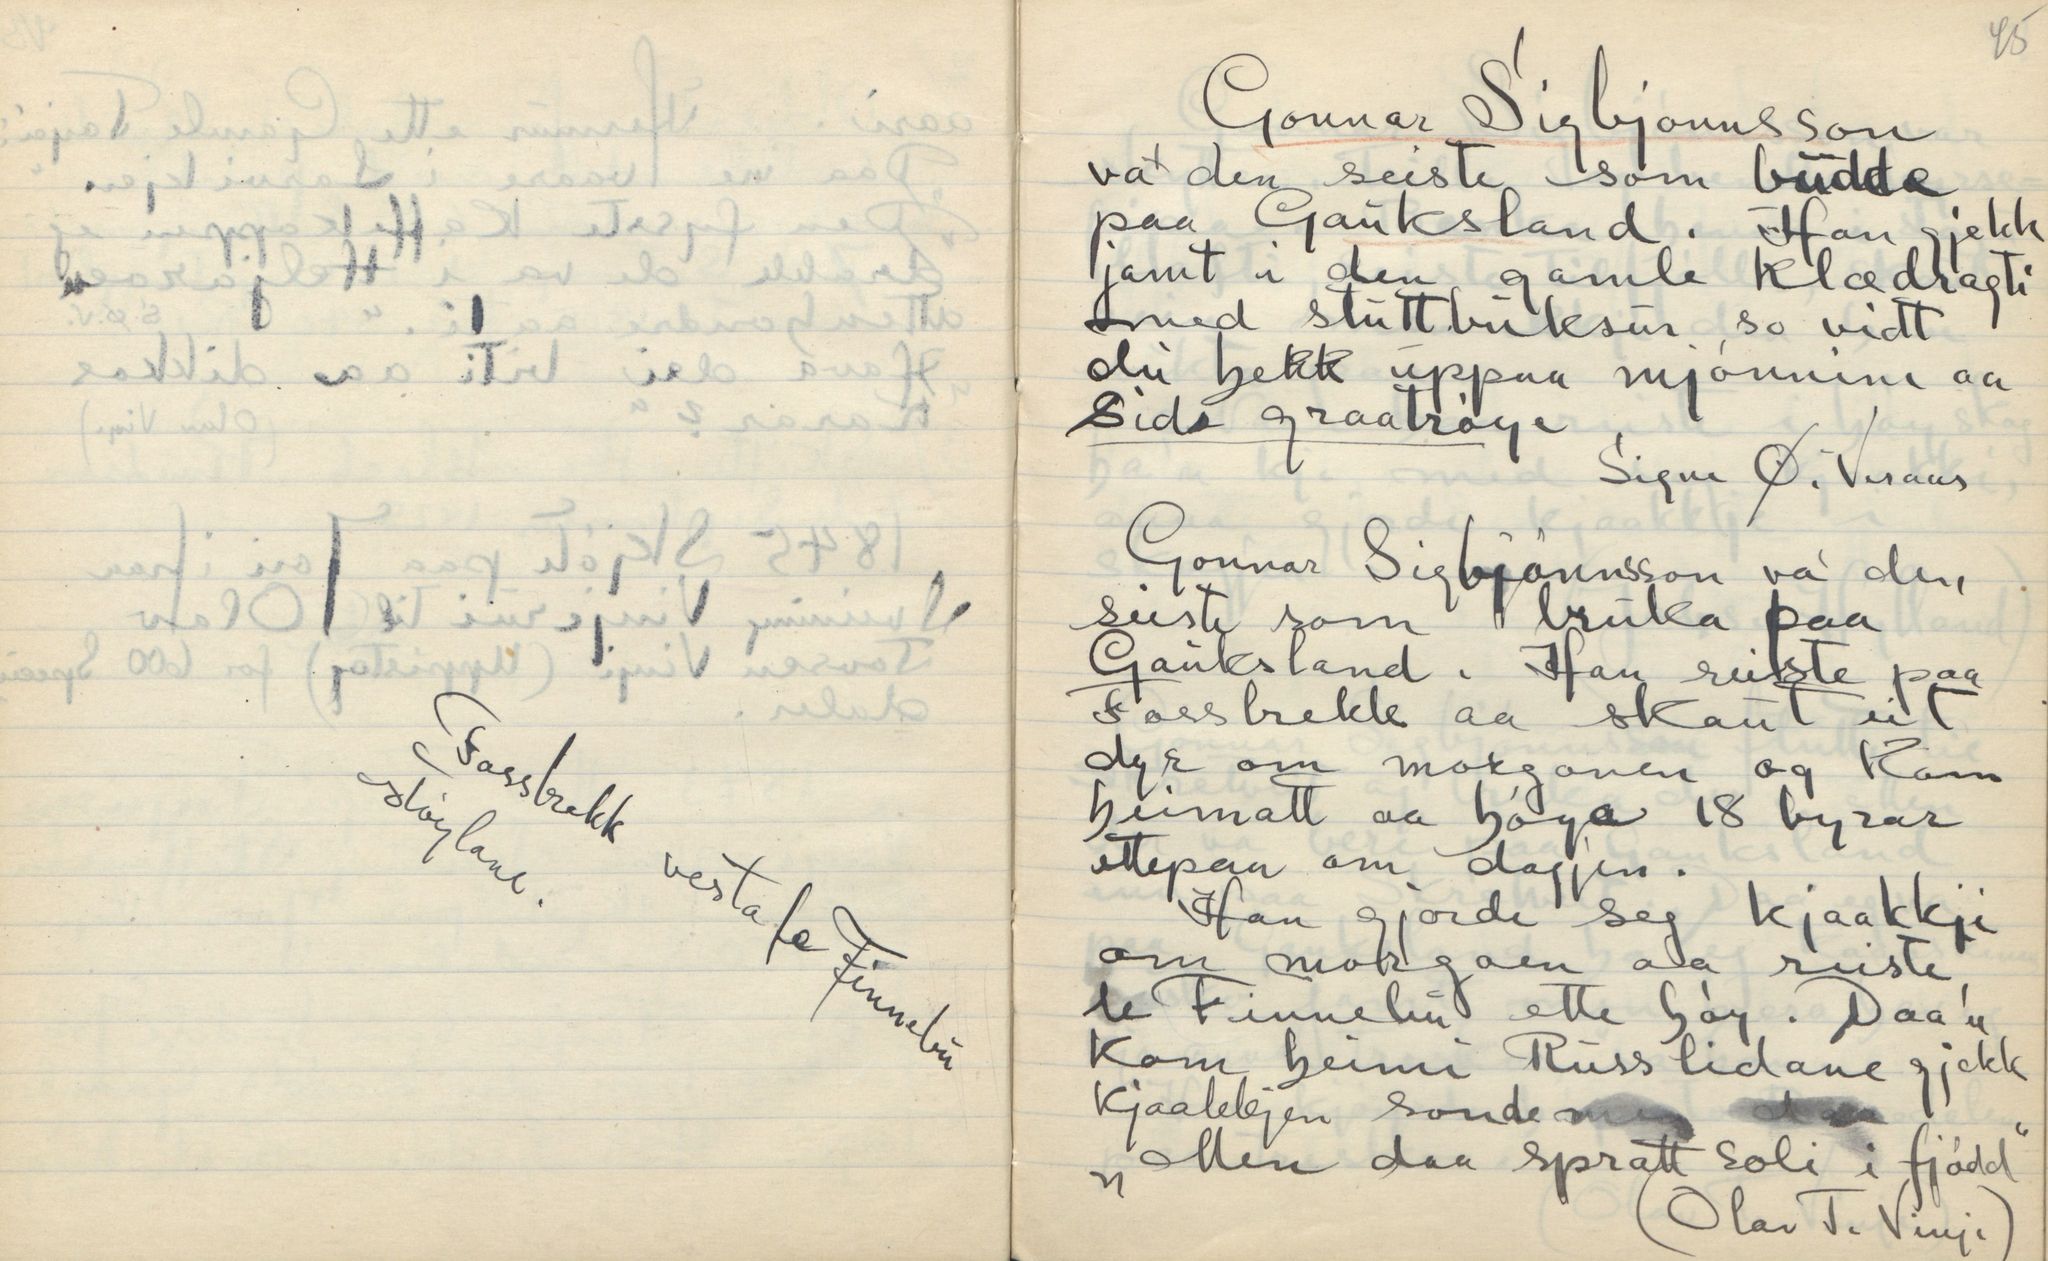 Fossbrekk vestafe Finnebu
støylane.
45
Gonnar Sigbjonnsson
va den seiste som budde
paa Gauksland. Han gjekk
jamt i den gamle klædragti
med stuttbuksur, so vidt
du hekk uppaa mjónnine aa
Sids graatróye.
Signe Ø. Veraas
Gonnar Sigbjónnsson va den
seiste som bruka paa
Gauksland. Han reiste paa
Fossbrekk aa skaut eit
dyr om morgonen og kom
heimatt aa hóya 18 byrar
ettepaa om dagjen.
Han gjorde seg kjaakkji
om morgoen aa reiste
te Finnebu ette hóy. Daa'n
kom heimi Russlidane gjekk
kjaakkjen sonde
„Men daa spratt soli i fjódd“
(Olav T. Vinje)